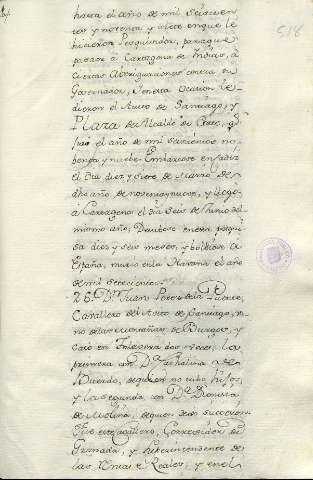 518
hasta el año de mil seiscien
tos y noventa y siete en que le
hicieron Pesquisidor, para que
pasase a Cartagena de Indias, a
ciertas Averiguaciones contra su
Governador, y en esta ocasion le
dieron el Avito de Santiago, y
Plaza de Alcalde de Corte, q.
fue el año de mil seiscientos no
benta y nuebe. Embarcose en Cadiz
el dia diez y siete de Marzo de
dho año de noventa y nueve, y llego
a Cartagena el dia seis de Junio del
mismo año, Detubose en esta pesqui
sa diez y seis meses, y bolbiose a
España, murio en la Havana el año
de mil setecientos.
26. Dn. Juan Perez de la Puente,
Cavallero del Avito de Santiago,
no de las montañas de Burgos, y
caso en dos veces: la
primera con Da.
de quien no tubo hijos,
y la segunda con Da.
de Molina, de quien dexo succesion
Fue este Cavallero, Corregidor de
Granada, y Superintendente de
las Rentas Reales, y en el